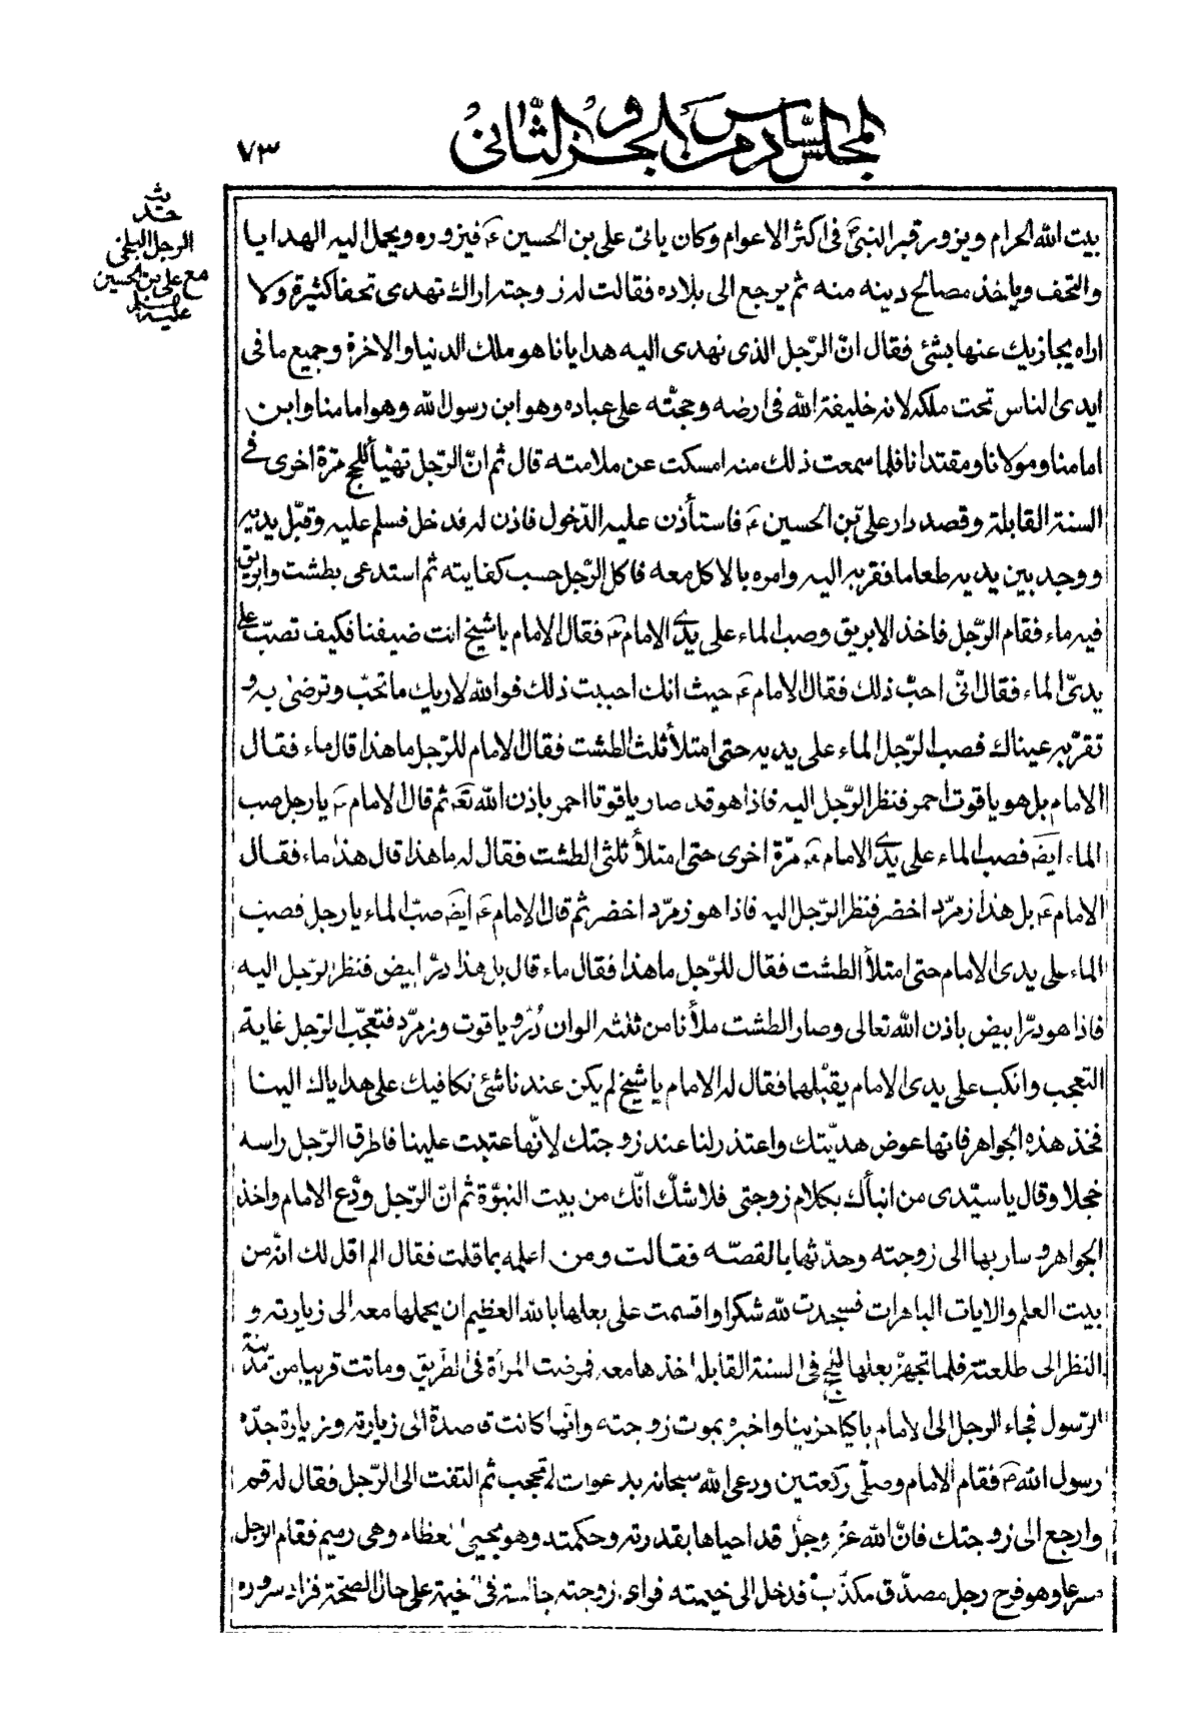 المجلس السادس من الجزؤ الثانى
٧٣
حديث
الرجل البلخى
مع على بن الحسين
عليه السلام
بيت الله الحرام ويزور قبر النبىّ فى اكثر الاعوام وكان ياتى على بن الحسين ع فيزوره ويحمل اليه الهدايا
والتحف وياخذ مصالح دينه منه ثم يرجع الى بلاده فقالت له زوجته اراك تهدى تحفا كثيرة ولا
اراه يجازيك عنها بشئ فقال انّ الرّجل الذى نهدى اليه هدايانا هو ملك الدنيا والاخرة وجميع ما فى
ايدى الناس تحت ملكه لانه خليفة الله فى ارضه وحجّته على عباده وهو ابن رسول الله وهو امامنا وابن
امامنا ومولانا ومقتدانا فلما سمعت ذلك منه امسكت عن ملامته قال ثم انّ الرّجل تهيّأ للحج مرّة اخرى فى
السنة القابلة وقصد دار علىّ بن الحسين ع فاستأذن عليه الدّخول فاذن له فدخل فسلم عليه وقبّل يديه
ووجد بين يديه طعاما فقربه اليه وامره بالاكل معه فاكل الرّجل حسب كفايته ثم استدعى بطشت وابريق
فيه ماء فقام الرّجل فاخذ الابريق وصب الماء على يدى الامام ع فقال الامام يا شيخ انت ضيفنا فكيف تصبّ على
يدىّ الماء فقال انّى احبّ ذلك فقال الامام ع حيث انك احببت ذلك فوالله لاريك ما تحبّ وترضى به و
تقرّ به عيناك فصب الرّجل الماء على يديه حتى امتلأ ثلث الطشت فقال الامام للرّجل ما هذا قال ماء فقال
الامام بل هو ياقوت احمر فنظر الرّجل اليه فاذا هو قد صار ياقوتا احمر باذن الله تعه ثم قال الامام ع يا رجل صب
الماء ايضه فصب الماء على يدى الامام ع مرّة اخرى حتى امتلأ ثلثى الطشت فقال له ما هذا قال هذا ماء فقال
الامام ع بل هذا زمرّد اخضر فنظر الرّجل اليه فاذا هو زمرّد اخضر ثم قال الامام ع ايضه صبّ الماء يا رجل فصب
الماء على يدى الامام حتى امتلأ الطشت فقال للرّجل ما هذا فقال ماء قال بل هذا درّ ابيض فنظر الرّجل اليه
فاذا هو درّ ابيض باذن الله تعالى وصار الطشت ملأنا من ثلثه الوان دُرّ وياقوت وزمرّد فتعجّب الرّجل غاية
التعجب وانكب على يدى الامام يقبّلهما فقال له الامام يا شيخ لم يكن عندنا شئ نكافيك على هداياك الينا
فخذ هذه الجواهر فانها عوض هديّتك واعتذر لنا عند زوجتك لانّها عتبت علينا فاطرق الرّجل راسه
خجلا وقال يا سيّدى من انبأك بكلام زوجتى فلا شكّ انّك من بيت النبوّة ثم انّ الرّجل ودّع الامام واخذ
الجواهر وسار بها الى زوجته وحدّثها بالقصّه فقالت ومن اعلمه بما قلت فقال الم اقل لك انّه من
بيت العلم والايات الباهرات فسجدت لله شكرا واقسمت على بعلها بالله العظيم ان يحملها معه الى زيارته و
النظر الى طلعته فلما تجهز بعلها للحج فى السنة القابله اخذها معه فمرضت المرأة فى الطريق وماتت قريبا من مدينة
الرّسول فجاء الرجل الى الامام باكيا حزينا واخبره بموت زوجته وانّها كانت قاصدة الى زيارته وزيارة جدّه
رسول الله ص فقام الامام وصلّى ركعتين ودعى الله سبحانه بدعوات لم تحجب ثم التفت الى الرّجل فقال له قم
وارجع الى زوجتك فانّ الله عزّ وجلّ قد احياها بقدرته وحكمته وهو يحيى العظام وهى رميم فقام الرجل
مسرعا وهو فرح رجل مصدّق مكذّب فدخل الى خيمته فراى زوجته جالسة فى الخيمة على حال الصّحّة فزاد سروره